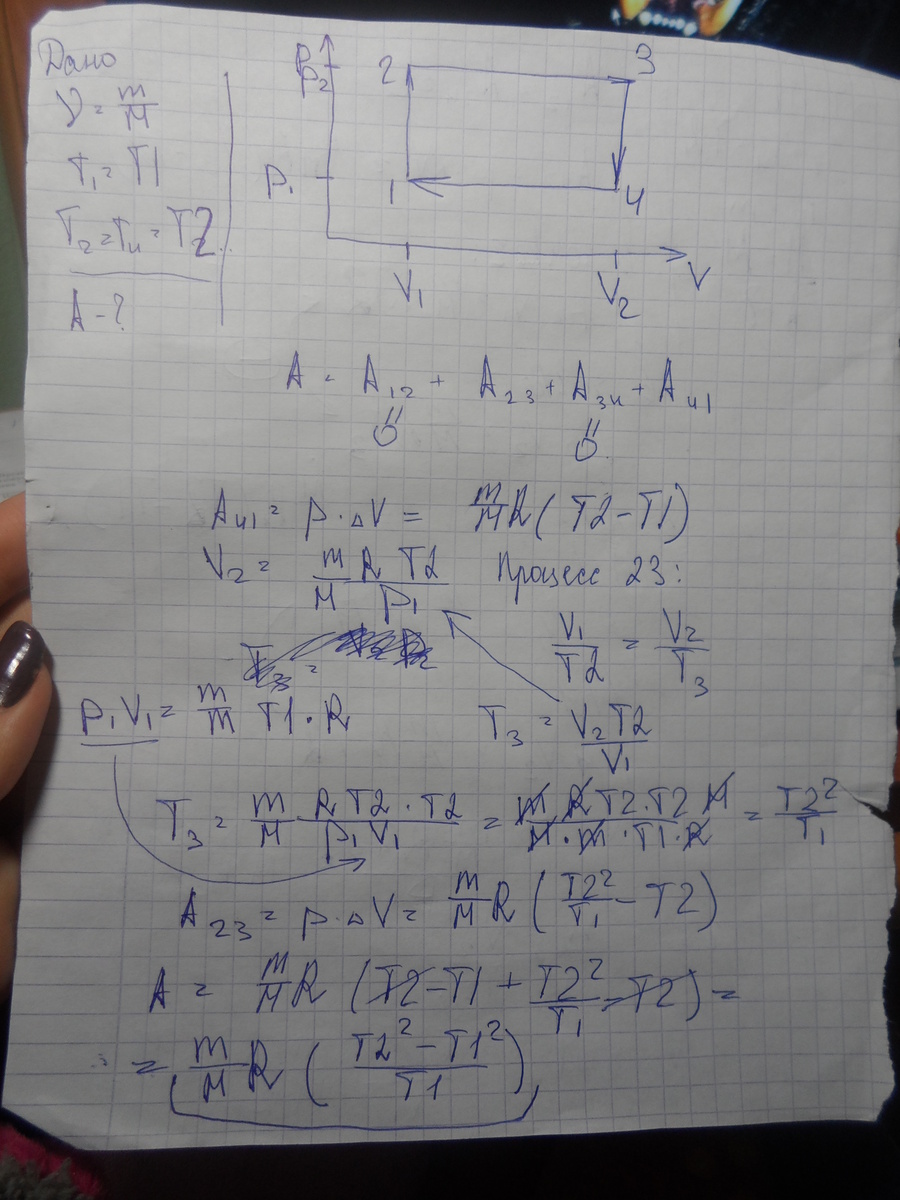 Дано
ν = m/M
T₁ = T1
T₂ = T₄ = T2
A - ?
P
P₂
2
3
P₁
1
4
V₁
V₂
V
A = A₁₂ + A₂₃ + A₃₄ + A₄₁
0
0
A₄₁ = p · ΔV = m/M R ( T2 - T1 )
V₂ = m/M R T2 / P₁ Процесс 23:
V₁/T2 = V₂/T₃
P₁V₁ = m/m T1 · R
T₃ = V₂ T2 / V₁
T₃ = m/M R T2 · T2 / P₁ V₁ = m R T2 · T2 M / M · m · T1 · R = T2²/T₁
A₂₃ = p · ΔV = m/M R ( T2²/T₁ - T2 )
A = m/M R ( T2 - T1 + T2²/T₁ - T2 ) =
= m/M R ( T2² - T1² / T1 )